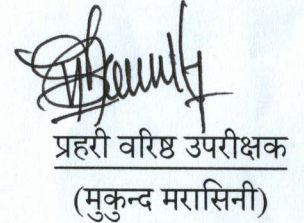 प्रहरी वरिष्ठ उपरीक्षक
(मुकुन्द मरासिनी)